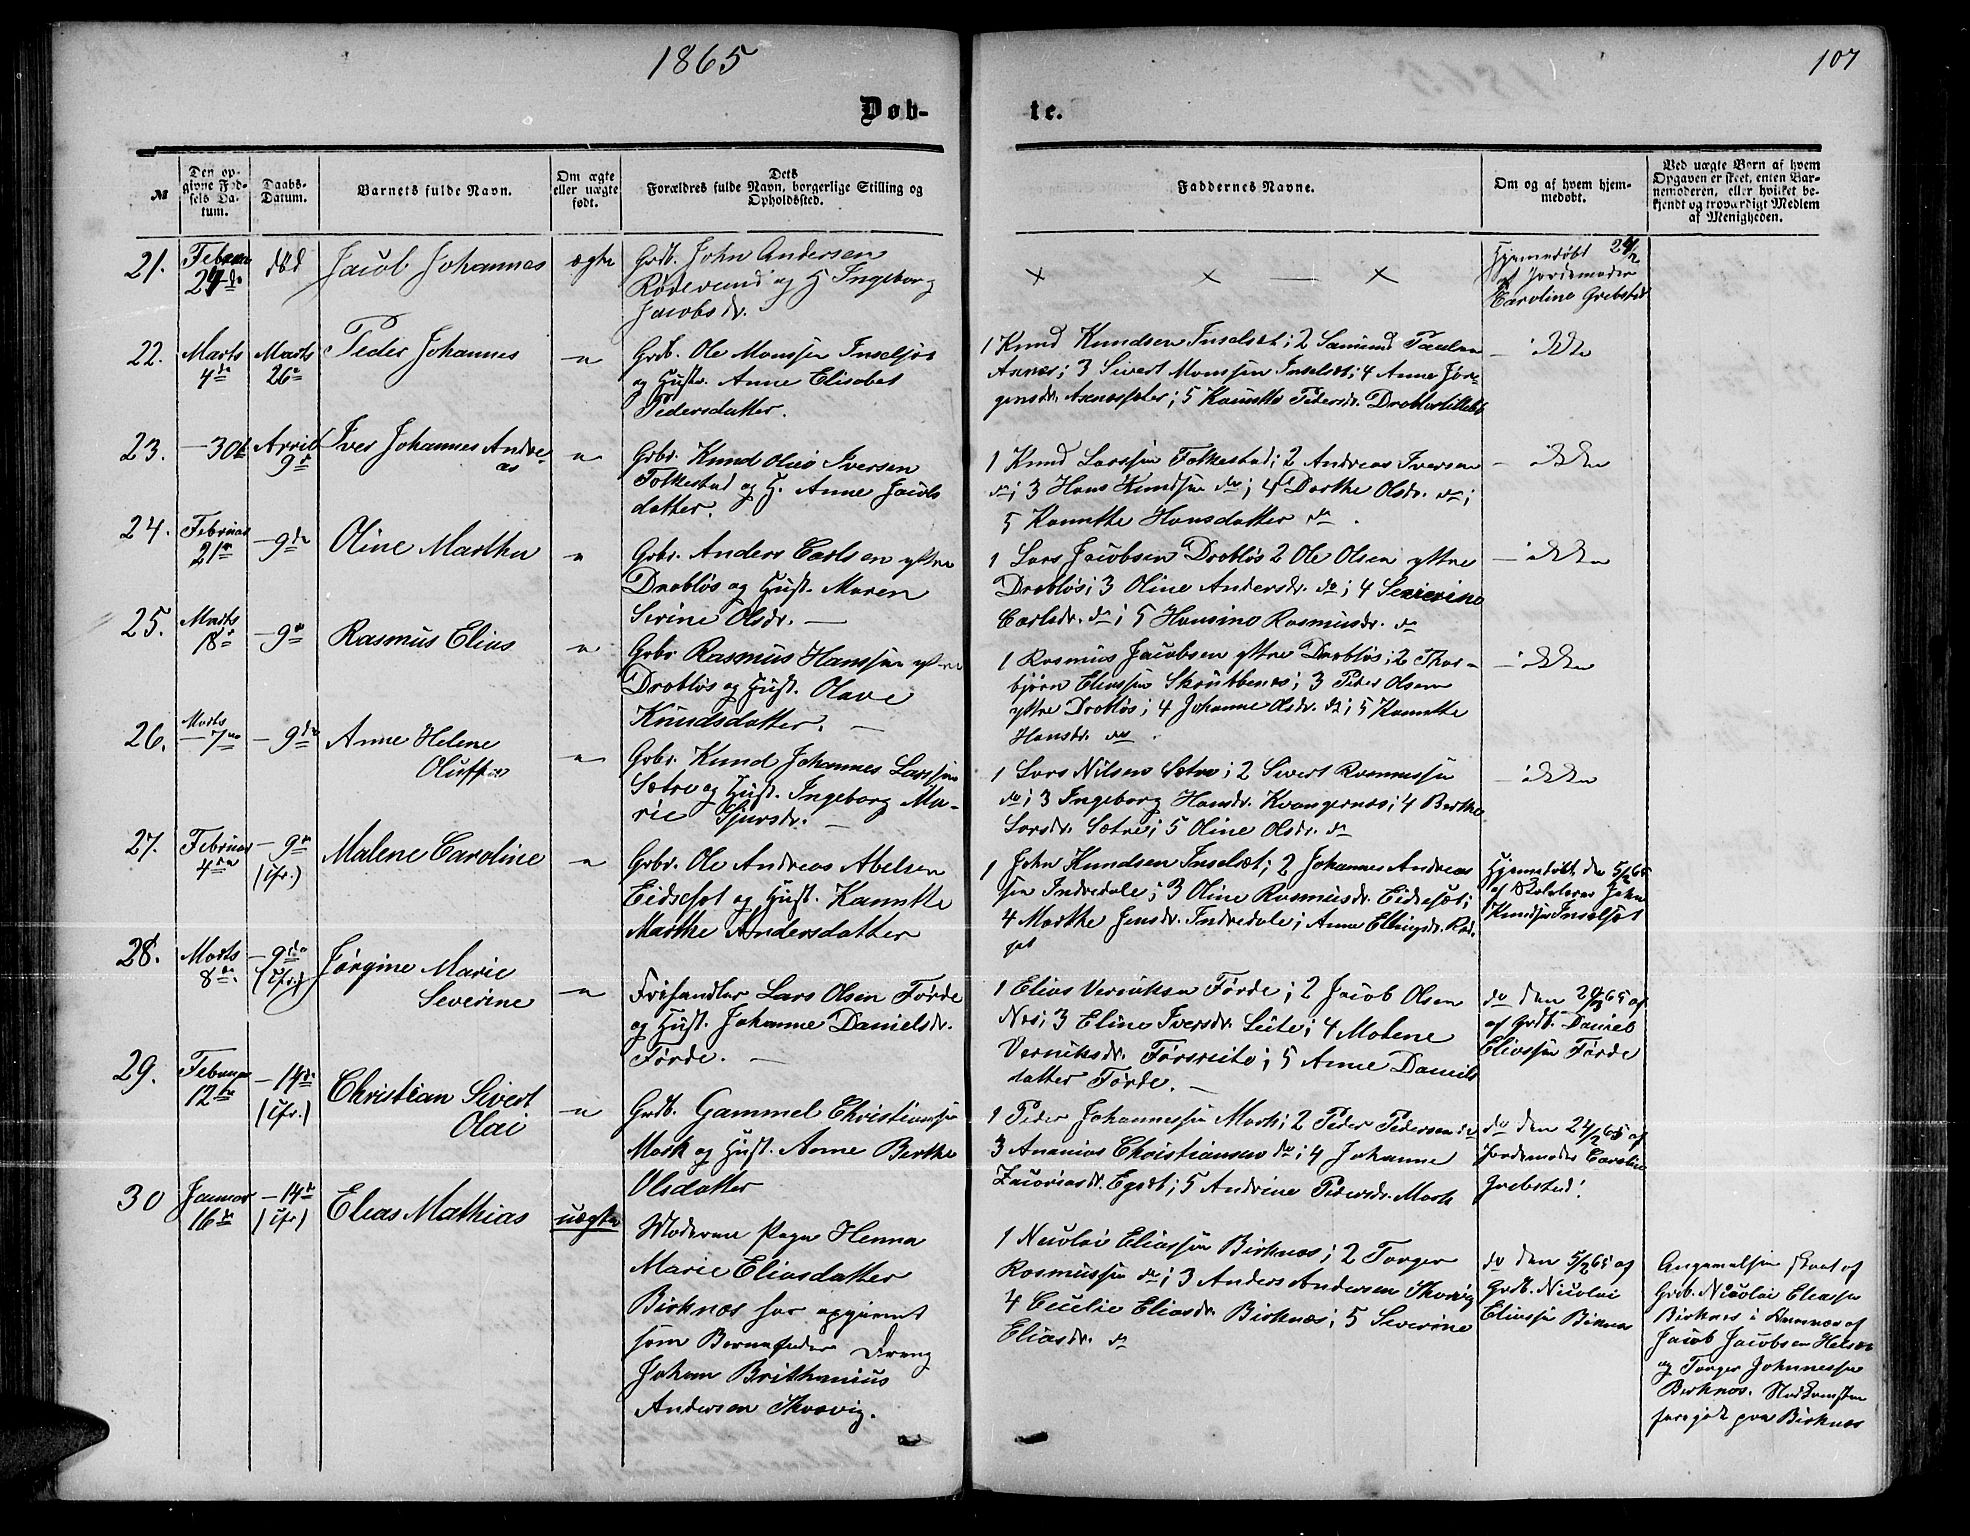 1865
107
Døb-
te.
№
Den op-
givne Fød-
sels Da-
tum.
Daabs-
Datum.
Barnets fulde Navn.
Om ægte
eller uægte
født.
Dets
Forældres fulde Navn, borgerlige Stilling og
Opholdssted.
Faddernes Navne.
Om og af hvem hjem-
medøbt.
Ved uægte Børn af hvem
Opgaven er skeet, enten Bar-
nemoderen, eller hvilket be-
kjendt og troværdigt Medlem
af Menigheden.
21.
24de
død
Jacob Johannes
ægte
Grdb. John Andersen
og H Ingeborg
Jacobsdr.
× × — ×
Hjemmedøbt 24/2
af Jordemoder
Caroline Grebsted
22.
Marts
4de
Marts
26e
Peder Johannes
"
Grdb. Ole Monssen Inselset
og Hustr. Anne Elisabet
Pedersdatter.
1 Knud Knudsen Inselset; 2 Samund Paulsen
Axnes; 3 Sivert Monssen Inselset; 4 Anne Jør-
gensdr. Axnessæter; 5 Kanutte Pedersdr.
— ikke
23.
— 30te
April
9de
Iver Johannes Andre-
as
"
Grbr. Knud Olus Iversen
Folkestad og H. Anne Jacobs
datter.
1 Knud Larssen Folkestad; 2 Andreas Iversen
do; 3 Hans Knudsen do; 4 Dorthe Olsdr. do;
5 Kanutte Hansdatter do.
— ikke
24.
Februar
21de
— 9de
Oline Martha
"
Grbr. Anders Carlsen yttre
Drabløs og Hust. Maren
Serine Olsdr. —
1 Lars Jacobsen Drabløs 2 Ole Olsen yttre
Drabløs; 3 Oline Andersdr. do; 4 Severine
Carlsdr. do; 5 Hansine Rasmusdr. do
— ikke
25.
Marts
18de
— 9de
Rasmus Elias
"
Grbr Rasmus Hanssen yttre
Drabløs og Hust. Olave
Knudsdatter. —
1 Rasmus Jacobsen yttre Drabløs; 2 Thor-
bjørn Eliassen Skrubbenes; 3 Peder Olsen
yttre Drabløs; 4 Johanne Olsdr. do; 5 Kanutte
Hansdr. do.
— ikke
26.
Marts
— 7de
— 9de
Anne Helene
Oluffa
"
Grbr. Knud Johannes Larssen
Sætre og Hust. Ingeborg Ma-
rie Sjursdr. —
1 Lars Nilsen Sætre; 2 Sivert Rasmussen
do; 3 Ingeborg Hansdr. Kvangernes; 4 Berthe
Larsdr. Sætre; 5 Oline Olsdr. do
— ikke
27.
Februar
4de
— 9de
(ifr.)
Malene Caroline
"
Grbr. Ole Andreas Abelsen
Eidset og Hust. Kanutte
Marthe Andersdatter
1 John Knudsen Inselset; 2 Johannes Andreas
sen Indredale; 3 Oline Rasmusdr. Eidseset;
4 Marthe Jensdr. Indredale; Anne Ellingsdr. Rød-
set
Hjemmedøbt den 5/2 65
af Skolelærer John
Knudsen Inselset
28.
Marts
8de
— 9de
(ifr.)
Jørgine Marie
Severine
"
Frihandler Lars Olsen Førde
og Hust. Johanne Danielsdr.
Førde. —
1 Elias Veriksen Førde; 2 Jacob Olsen
Nes; 3 Eline Iversdr. Leite; 4 Malene
Veriksdr. Førsreite; 5 Anne Daniels
datter Førde. —
do den 20/3 65 af
af Grdb. Daniel
Eliassen Førde
29.
Februar
12te
— 14de
(ifr.)
Christian Sivert
Olai
"
Grdb. Gammel Christiansen
Mork og Hust. Anne Berthe
Olsdatter
1 Peder Johannessen Mork; 2 Peder Pedersen do
3 Ananias Christiansen do; 4 Johanne
Zacariasdr. Egset; 5 Andrine Pedersdr. Mork
do den 24/2 65 af
Jordemoder Caroline
Grebsted.
30
Januar
16de
— 14de
(ifr)
Elias Mathias
uægte
Moderen Pige Henna
Marie Eliasdatter
Birknes har opgivet
som Barnefader Dreng
Johan Brithanius
Andersen Skarvig.
1 Nicolai Eliassen Birknes; 2 Torger
Rasmussen do; 3 Anders Andersen Skarvig
4 Cecilie Eliasdr. Birknes; 5 Severine
Eliasdr. do
do den 5/2 65 af
Grdb. Nicolai
Eliassen Birknes
Angivelsen skeet af
Grb. Nicolai Eliassen
Birknes i Nærvær af
Jacob Jacobsen
og Torger Johannessen
Birknes. Nedkomsten
foregik paa Birknes